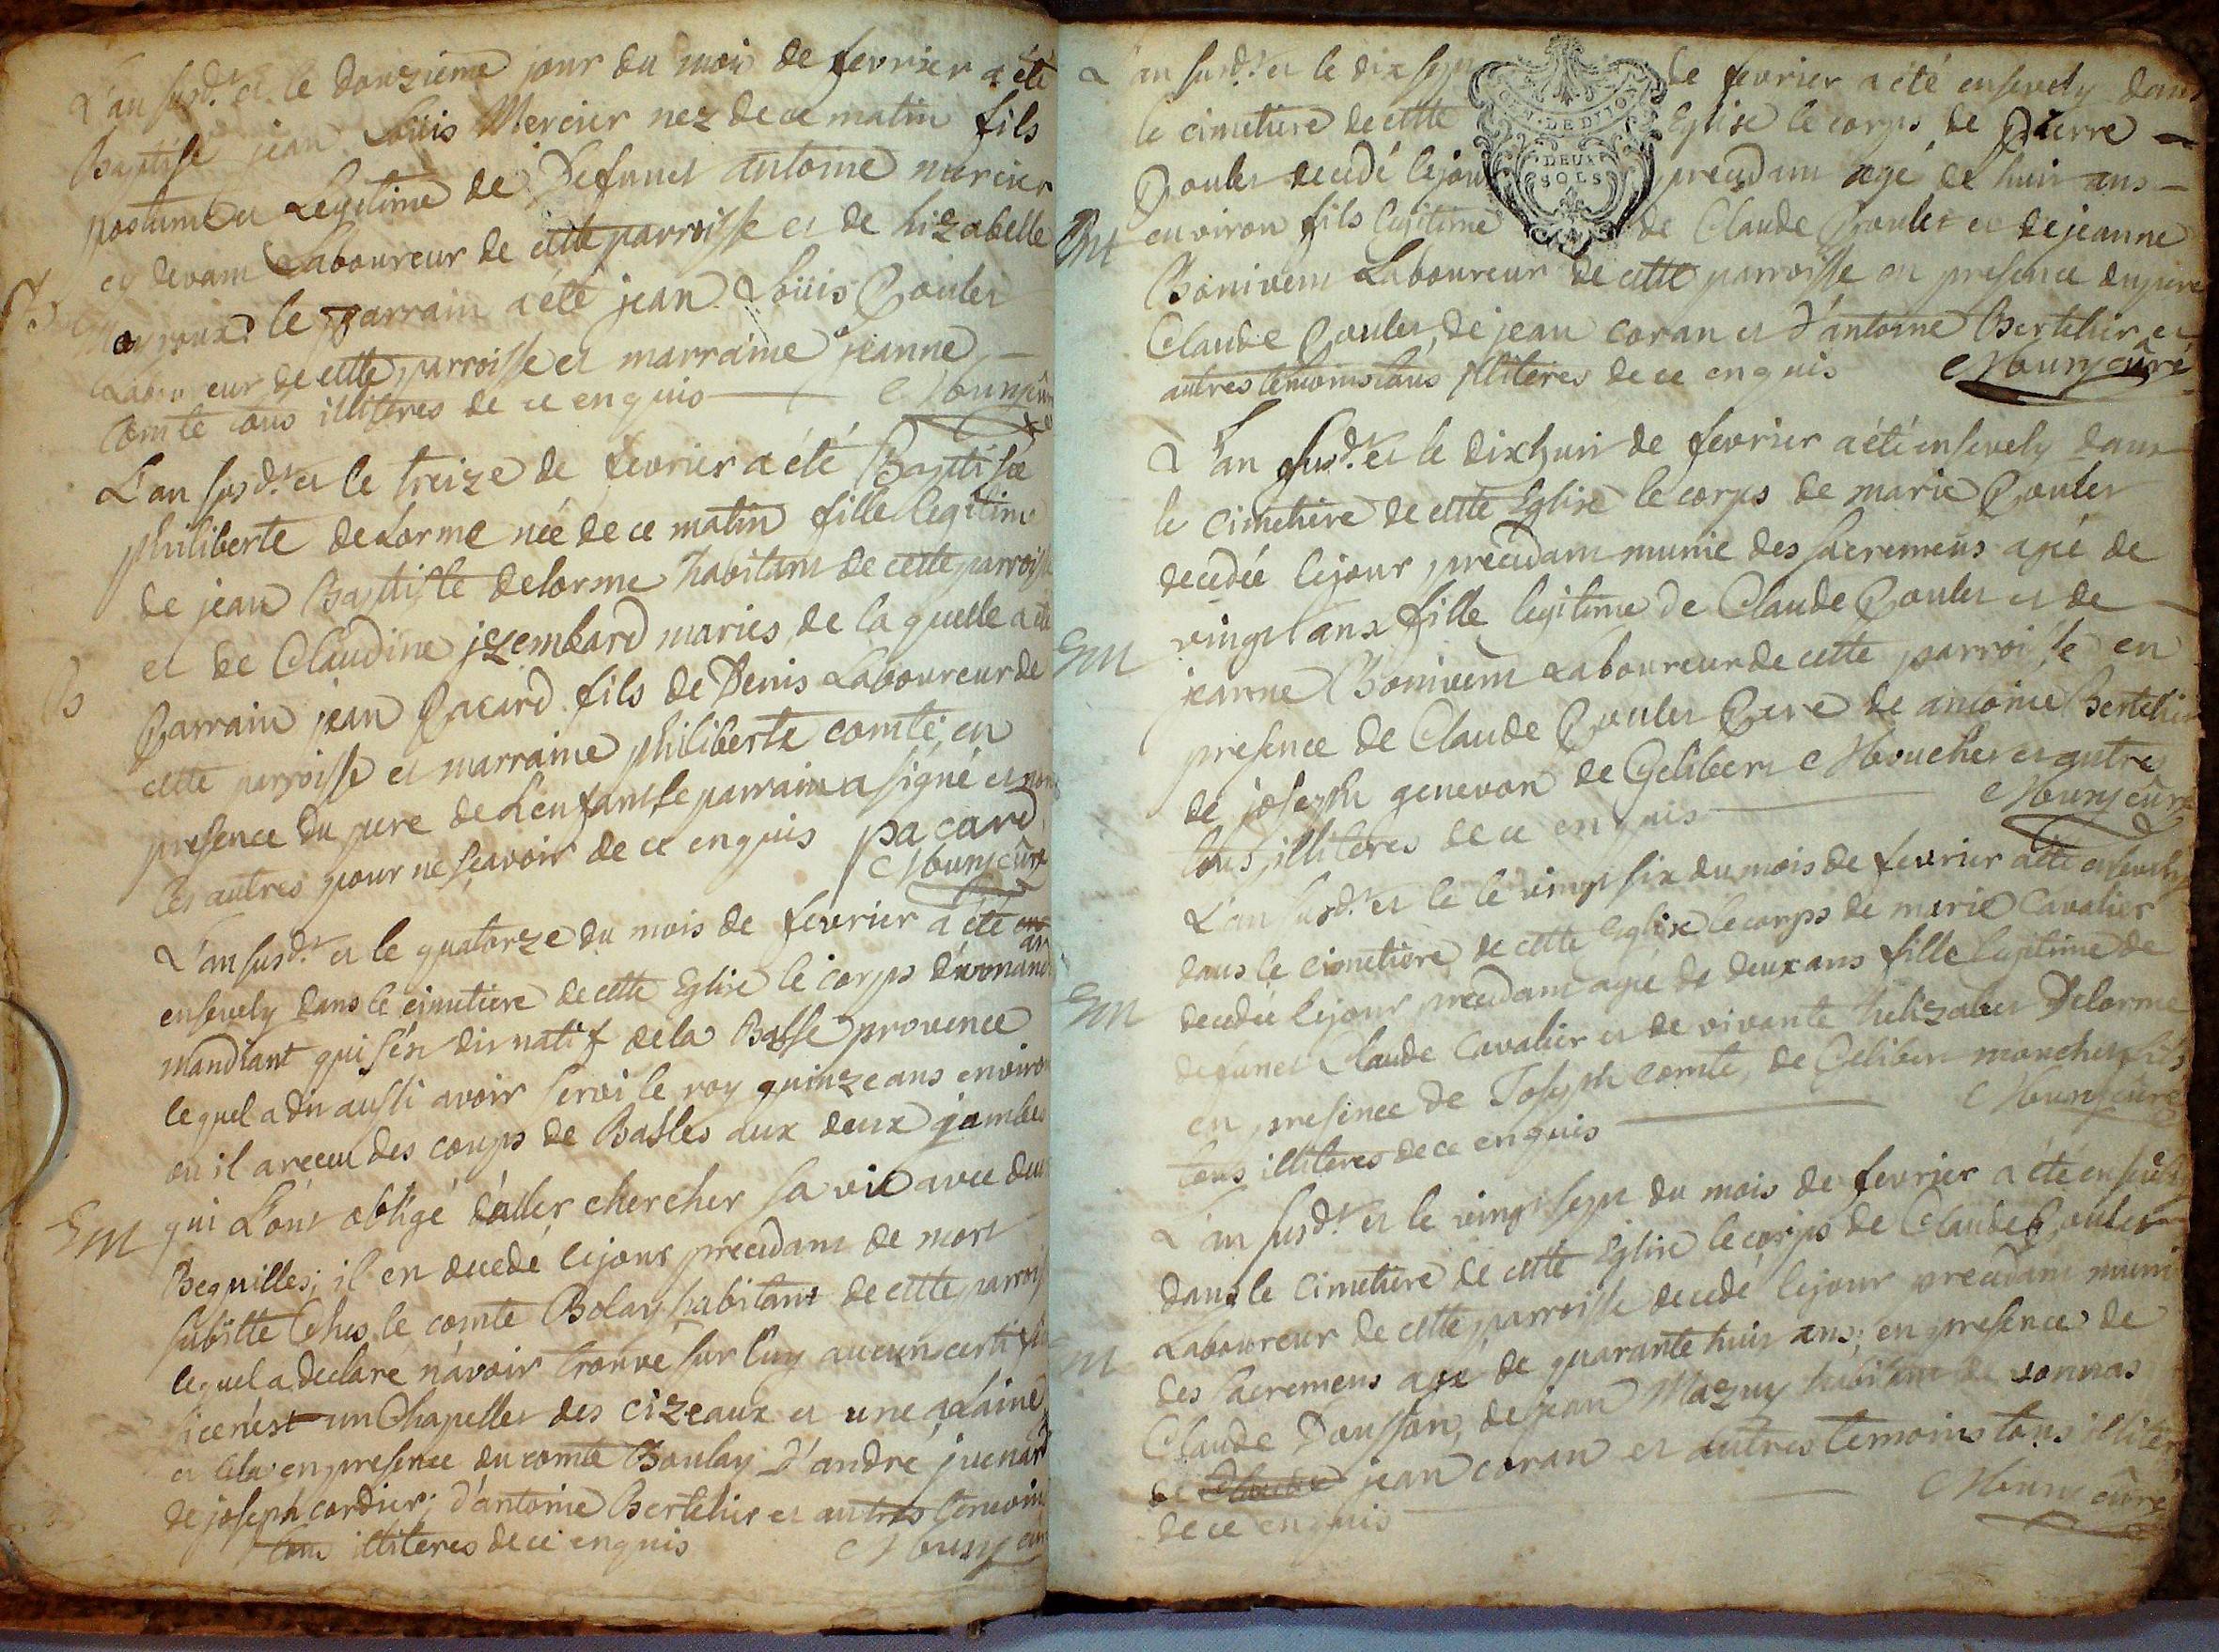 L'an susd.t et le douzieme jour du mois de fevrier a été
Baptisé jean Loüis Mercier nez de ce matin fils
postume et Legitime de Defunct antoine mercier
cy devant Laboureur de cette parroisse et de hizabelle
le parrain a été jean Loüis Poulet
Laboureur de cette parroisse et marraine jeanne
Comte tous illiteres de ce enquis Moury curé
L'an susd.t et le treize de fevrier a été Baptisée
philiberte deLorme née de ce matin fille legitime
de jean Baptiste delorme habitant de cette parroisse
et de Claudine jzembard mariés, de la quelle a été
Parrain jean Pacard fils de Denis Laboureur de
cette parroisse et marraine philiberte comte, en
presence du pere de L'enfant Le parrain a signé et non
les autres pour ne sçavoir de ce enquis pacard
Moury curé
L'an susd.t et le quatorze du mois de fevrier a été
ensevely dans le cimetiere de cette Eglise le corps d'un
mandiant qui s'est dit natif de la Basse provence
lequel a dit aussi avoir servi le roy quinze ans environ
ou il a receu des coups de Basles aux deux jambes
Em
qui L'ont obligé d'aller chercher sa vie avec deux
Bequilles; il en decedé le jour precedant de mort
subitte Ches le comte Bolay habitant de cette parroisse
lequel a declaré n'avoir trouvé sur luy aucun certifi
si ce n'est un Chapellet des cizeaux et une alaine
et cela en presence du comte Boulay d'andré juenard
de joseph cordier; d'antoine Bertelier et autres temoins
tous illiteres de ce enquis Moury curé
L'an susd.t et le dix sept de fevrier a été ensevely dans
le cimetiere de cette Eglise le corps de Pierre
GEN. DE DIJON
DEUX
SOLS
Poulet decedé le jour precedant agé de huit ans
Em
environ fils legitime de Claude Poulet et de jeanne
Bonivent Laboureur de cette parroisse en presence du pere
Claude Poulet, de jean coran et d'antoine Bertelier et
autres temoins tous illiteres de ce enquis Moury curé
L'an susd.t et le dixhuit de fevrier a été ensevely dans
le cimetiere de cette Eglise le corps de marie Poulet
decedée le jour precedant munie des sacremens agée de
vingt ans fille legitime de Claude Poulet et de
Em
jeanne Bonivent Laboureur de cette parroisse en
presence de Claude Poulet Pere de antoine Bertelier
de joseph genevon de Gelibert Moucher et autres
tous illiteres de ce enquis Moury curé
L'an susd.t et le le vingt six du mois de fevrier a été ensevely
dans le cimetiere de cette Eglise le corps de marie Cavalier
Em
decedée le jour precedant agée de deux ans fille legitime de
defunct Claude Cavalier et de vivante helizabet Delorme
en presence de Joseph comte, de Gelibert moucher fils
tous illiteres de ce enquis Moury curé
L'an susd.t et le vingt sept du mois de fevrier a été ensevely
dans le cimetiere de cette Eglise le corps de Claude Poulet
Laboureur de cette parroisse decedé le jour precedant muni
des sacremens agé de quarante huit ans; en presence de
Claude Doussan, de jean Mazuy habitant de vonnas
de jean coran et autres temoins tous illiter
de ce enquis Moury curé